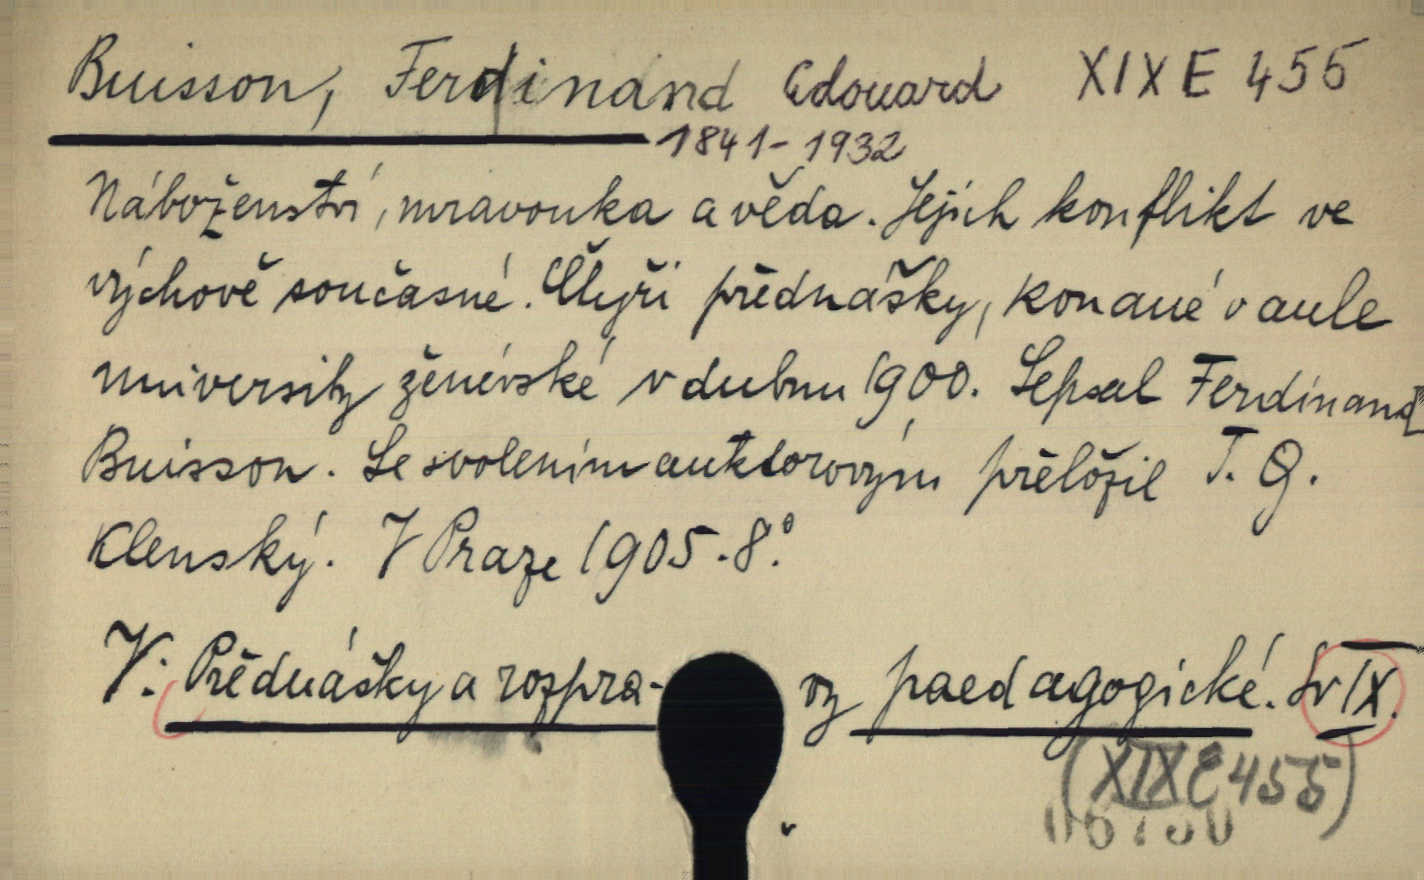 Buisson, Ferdinand Edouard XIX E 455
1841-1932
Náboženství, mravouka a věda. Jejich konflikt ve
výchově současné. Čtyři přednášky, konané v aule
university ženevské v dubnu 1900. Sepsal Ferdinand
Buisson. Se svolením auktorovým přeložil T. G.
Klenský. V Praze 1905. 8°.
V: Přednášky a rozpra-vy paedagogické. Sv IX.
(XIX E 455)